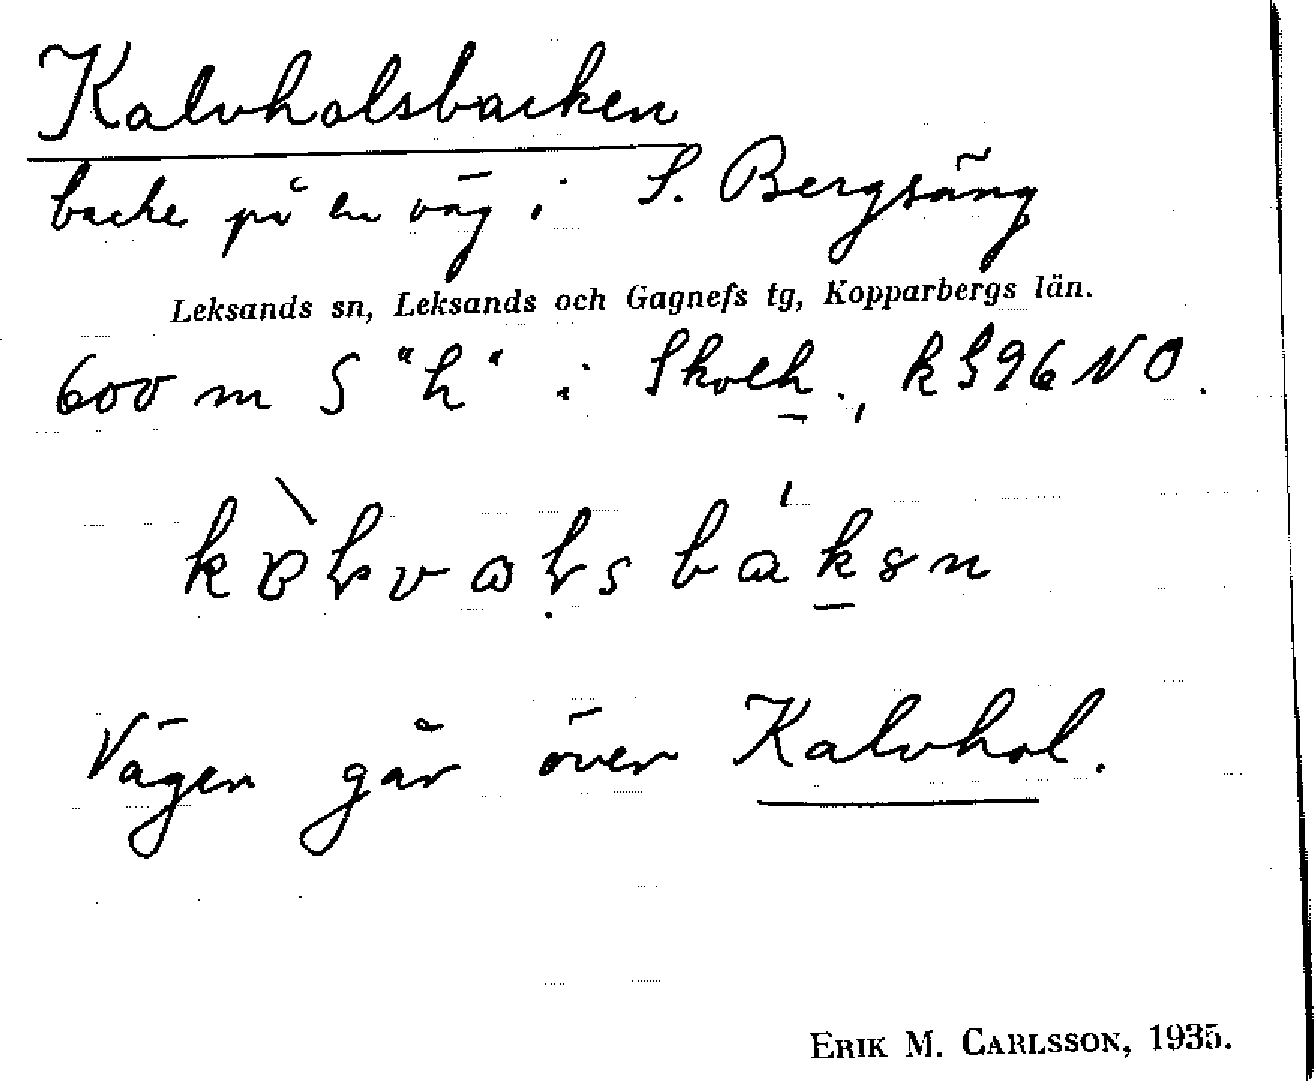 Kalvholsbacken
backe på en väg i S. Bergsäng
Leksands sn, Leksands och Gagnefs tg, Kopparbergs län.
600 m S "h" i Skolh., k S96 NO.
Vägen går över Kalvhol.
ERIK M. CARLSSON, 1935.